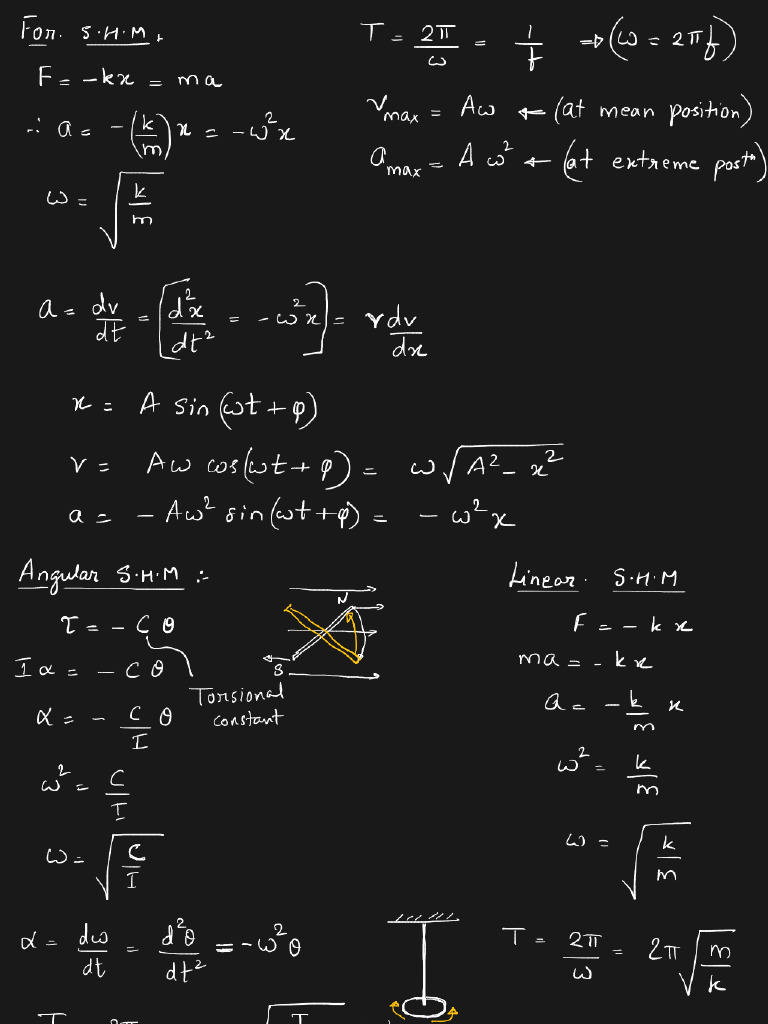 For S.H.M,
F = -kx = ma
∴ a = -(k/m)x = -ω²x
ω = √(k/m)
T = 2π/ω = 1/f ⇒ (ω = 2πf)
v_max = Aω ← (at mean position)
a_max = Aω² ← (at extreme postⁿ)
a = dv/dt = [d²x/dt² = -ω²x] = v dv/dx
x = A sin(ωt + φ)
v = Aω cos(ωt + φ) = ω√(A² - x²)
a = - Aω² sin(ωt + φ) = - ω²x
Angular S.H.M :-
τ = - C θ
Iα = - C θ
Torsional
constant
α = - C/I θ
ω² = C/I
ω = √(C/I)
α = dω/dt = d²θ/dt² = -ω²θ
N
S
Linear S.H.M
F = - k x
ma = - kx
a = - k/m x
ω² = k/m
ω = √(k/m)
T = 2π/ω = 2π√(m/k)